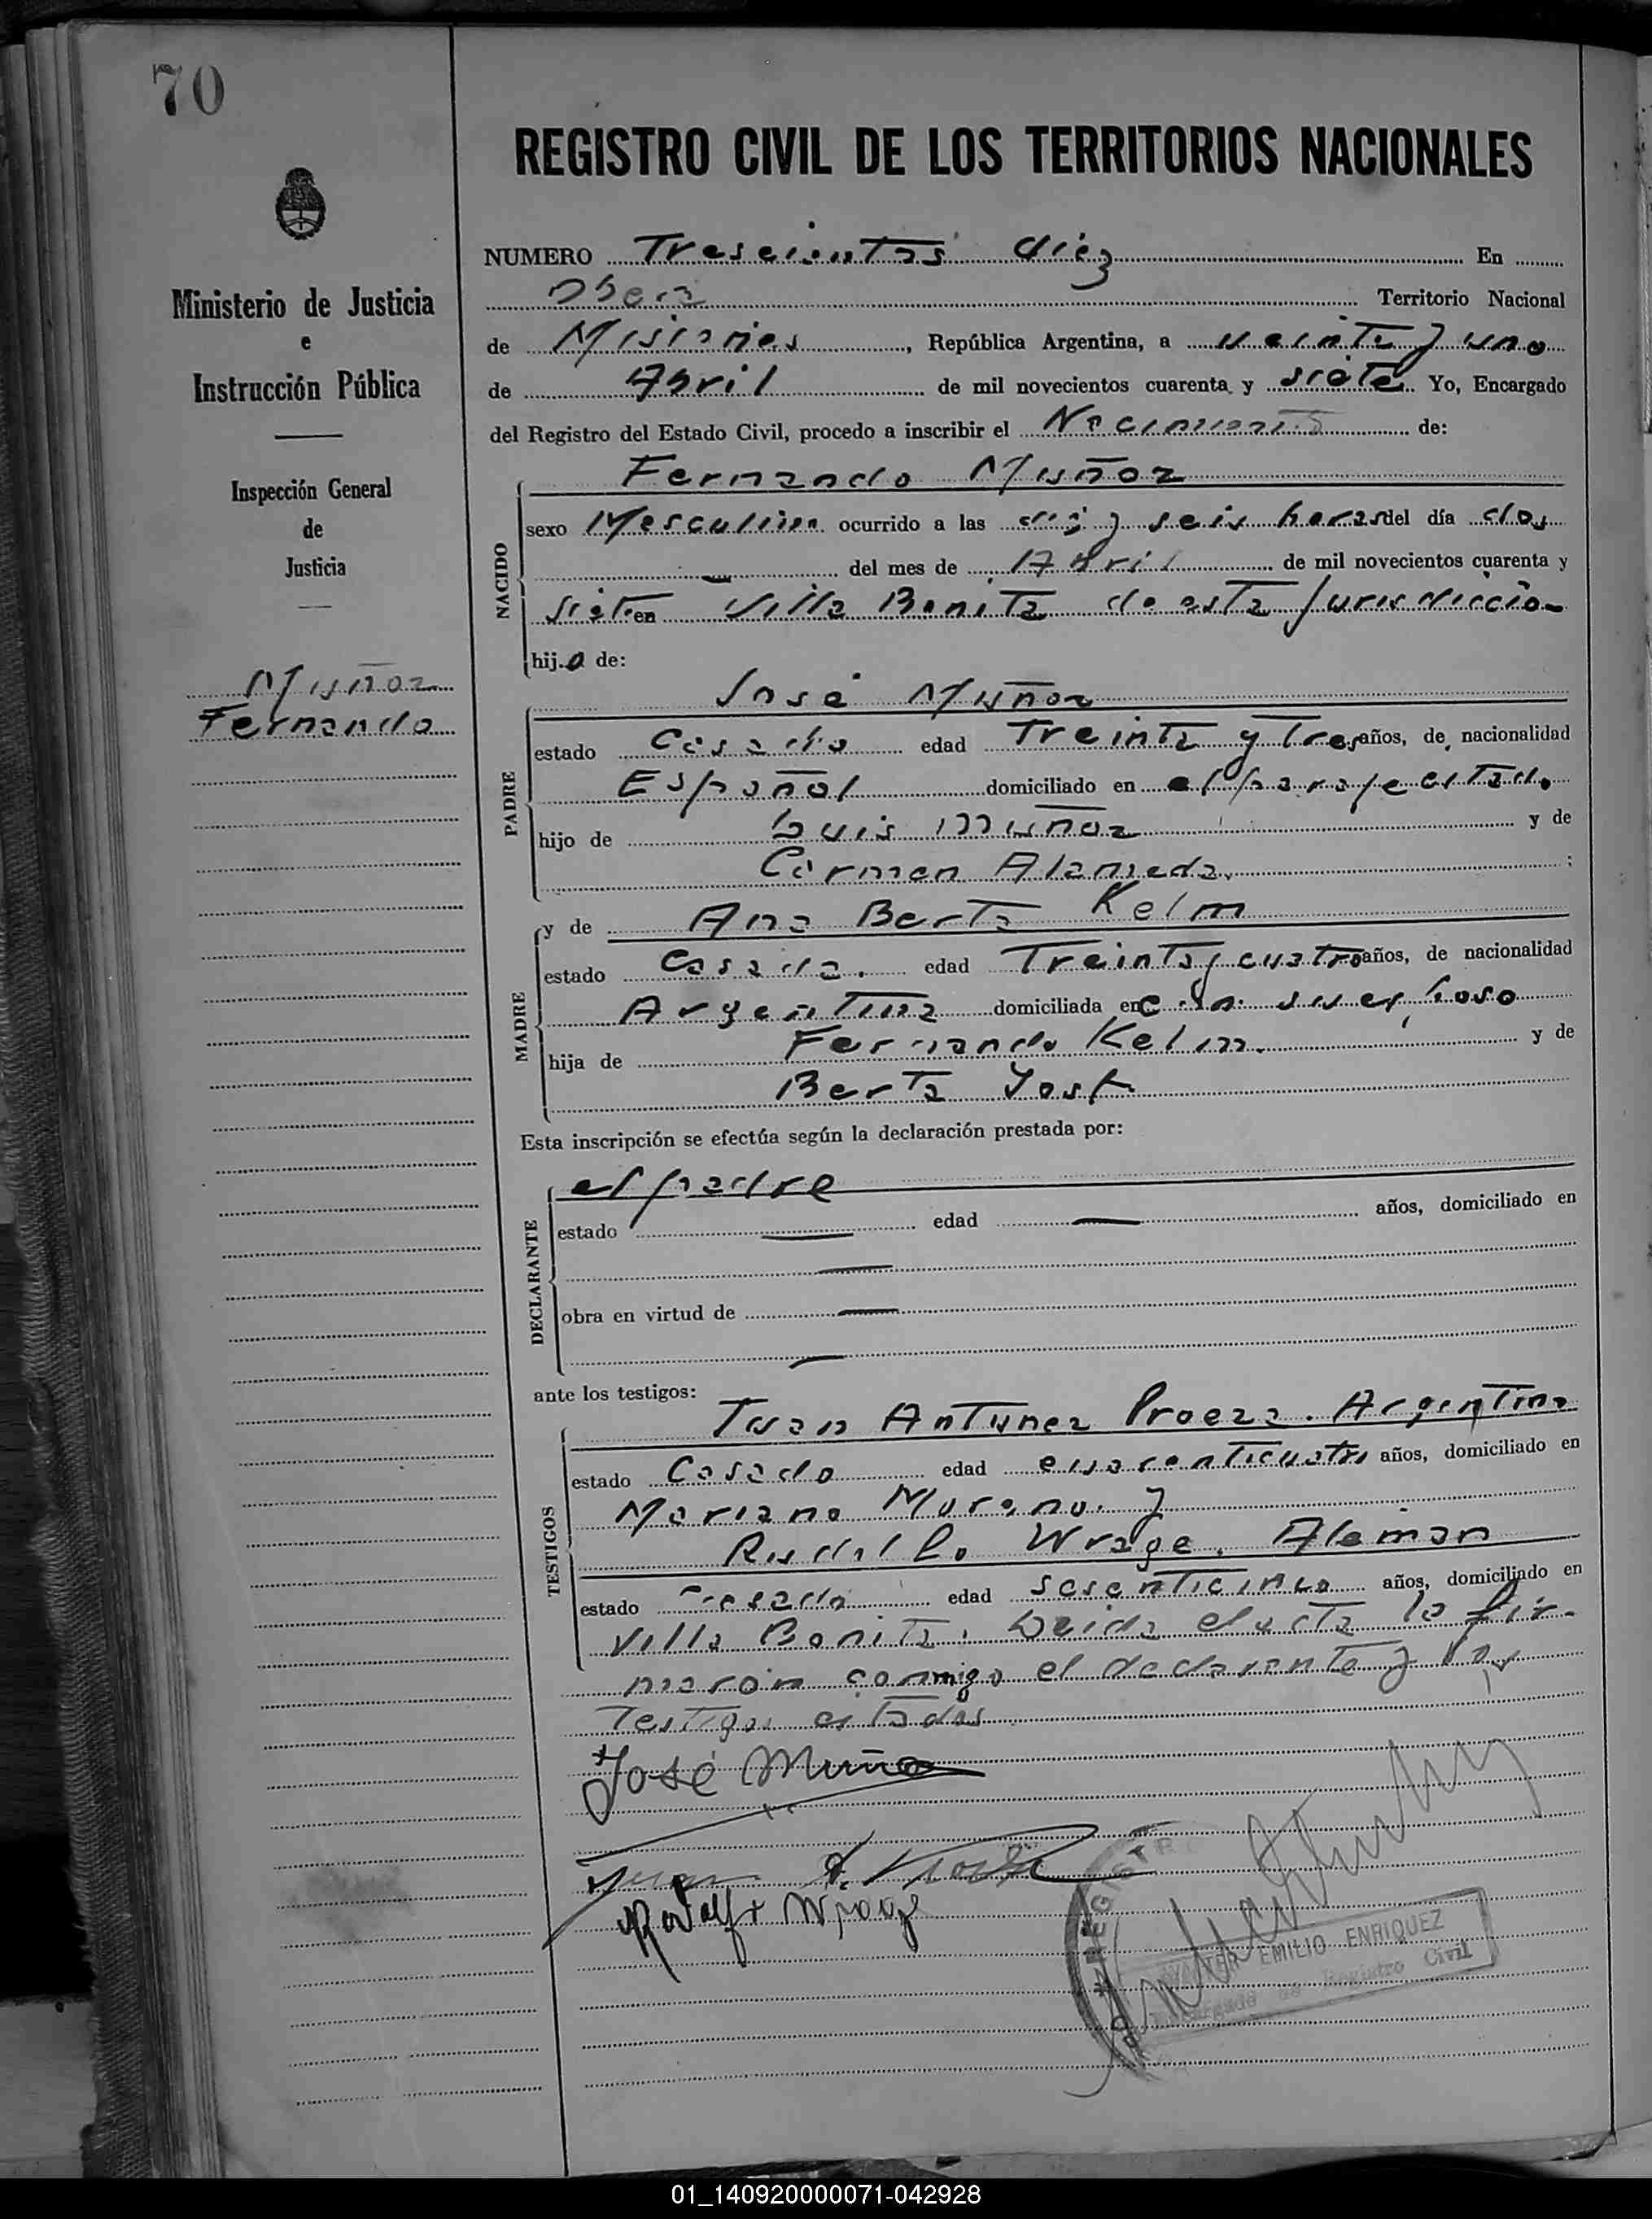 70
REGISTRO CIVIL DE LOS TERRITORIOS NACIONALES
Ministerio de Justicia
e
Instrucción Pública
Inspección General
de
Justicia
Muñoz
Fernando
NUMERO Trescientos diez En
Oberá Territorio Nacional
de Misiones, República Argentina, a veinte y uno
de Abril de mil novecientos cuarenta y siete Yo, Encargado
del Registro del Estado Civil, procedo a inscribir el Nacimiento de:
Fernando Muñoz
NACIDO
sexo Masculino ocurrido a las diez y seis horas del día dos
del mes de Abril de mil novecientos cuarenta y
siete en Villa Bonita de esta Jurisdicción
hijo de:
José Muñoz
PADRE
estado Casado edad Treinta y Tres años, de nacionalidad
Español domiciliado en el paraje citado
hijo de Luis Muñoz y de
Carmen Alameda ;
MADRE
y de Ana Berta Kelm
estado Casada. edad Treinta y cuatro años, de nacionalidad
Argentina domiciliada en con su esposo
hija de Fernando Kelm. y de
Berta Yost
Esta inscripción se efectúa según la declaración prestada por:
el padre
DECLARANTE
estado — edad — años, domiciliado en
—
obra en virtud de —
—
ante los testigos:
Juan Antunez Proeza. Argentino
TESTIGOS
estado Casado edad cuarenticuatro años, domiciliado en
Mariano Moreno. y
Rodolfo Wrage. Alemán
estado Casado edad sesenticinco años, domiciliado en
Villa Bonita. Leida el acta la fir-
maron conmigo el declarante y los
Testigos citados
José Muñoz
Juan A.
Rodolfo Wrage
WALTER EMILIO ENRIQUEZ
Encargado de Registro Civil
01_140920000071-042928